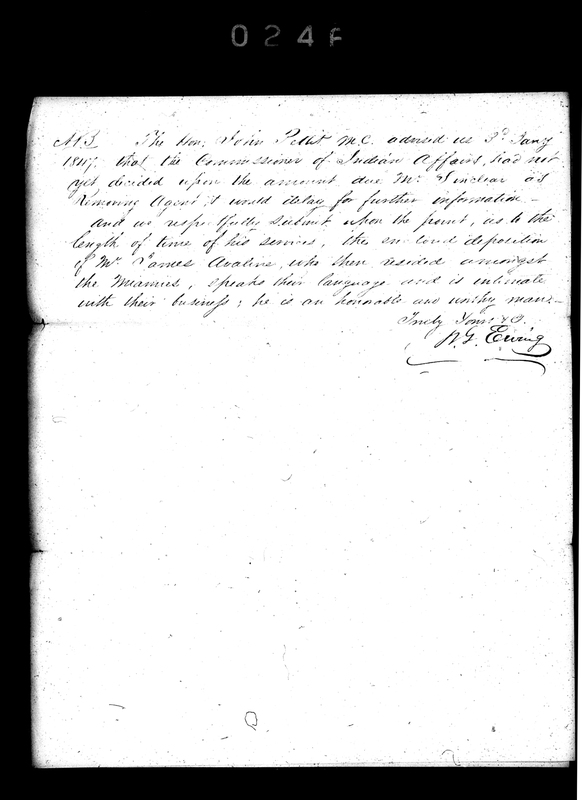 024F
N.B. The Hon. John Pettit M.C. advised us 3d Jany
1847, that the Commissioner of Indian Affairs, had not
yet decided upon the amount due Mr. Sinclear as
Removing Agent & would delay for further information —
and we respectfully submit upon the point, as to the
length of time of his services, the deposition
of Mr. James Avaline, who then resided amongst
the Miamies, speaks their language and is intimate
with their business; he is an honorable and worthy man —
Truly Yours &c.
W. G. Ewing